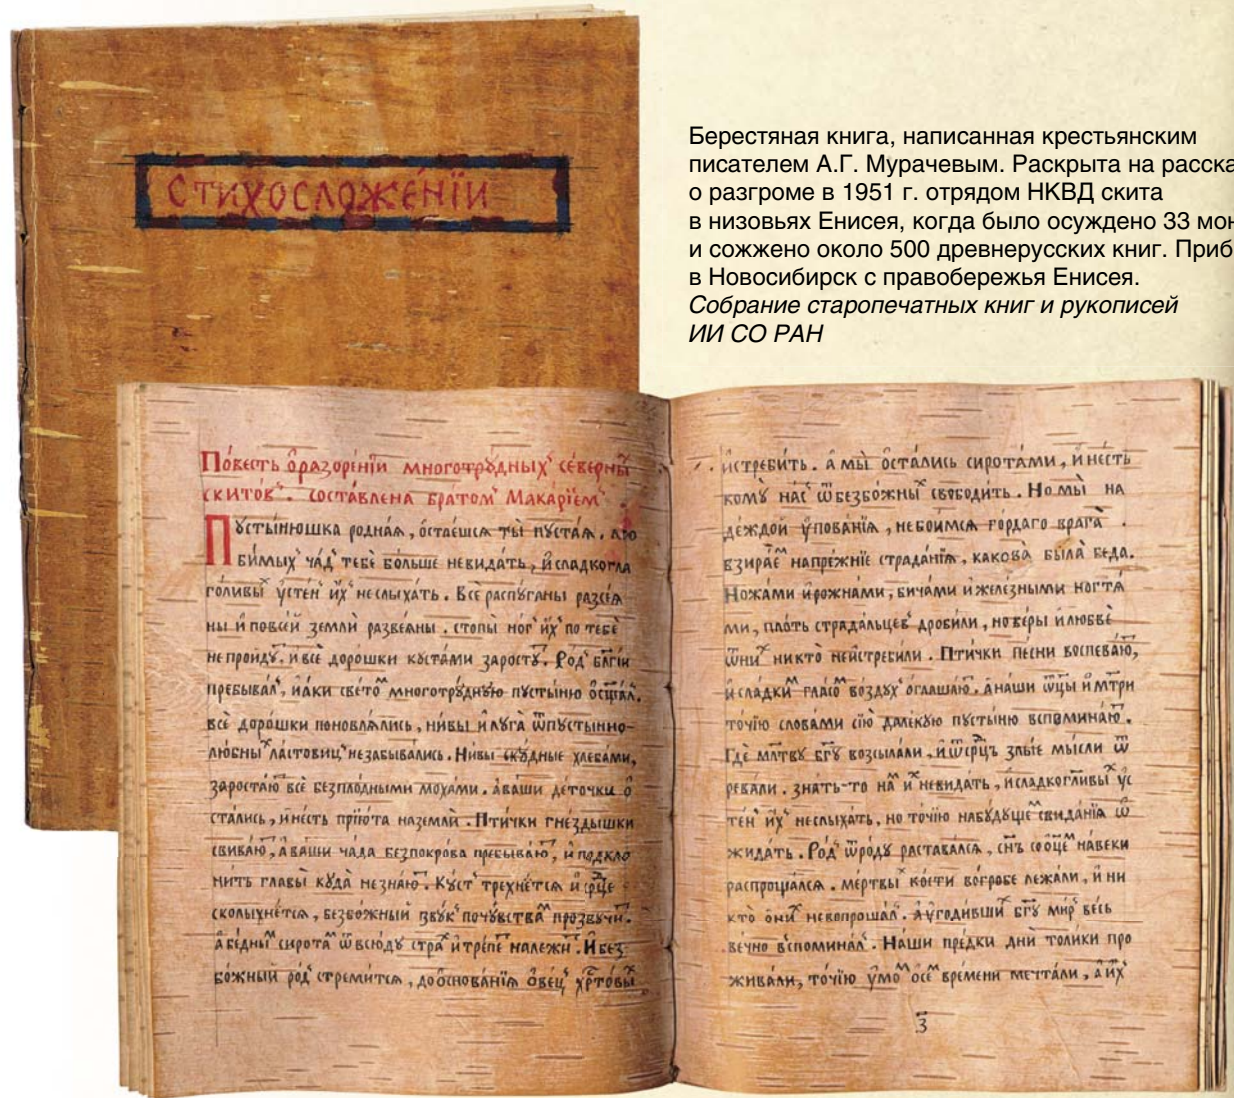 СТИХОСЛОЖЕ́НЇИ
Берестяная книга, написанная крестьянским
писателем А.Г. Мурачевым. Раскрыта на расска
о разгроме в 1951 г. отрядом НКВД скита
в низовьях Енисея, когда было осуждено 33 мон
и сожжено около 500 древнерусских книг. Приб
в Новосибирск с правобережья Енисея.
Собрание старопечатных книг и рукописей
ИИ СО РАН
По́весть ѻ҆разоре́нїи многотрꙋ́дныхъ се́верны
ски́товъ. соста́влена бра́томъ Мака́рїемъ
Пꙋсты́нюшка родна́ѧ, ѻ҆стае́шсѧ ты̀ пꙋста́ѧ. лю
би́мыхъ ча́дъ тебѐ бо́льше невида́ть, и҆сладкогла
го́ливы ᲂу҆сте́нъ и҆́хъ неслыха́ть. Всѐ распꙋ́ганы разсе́ѧ
ны и҆повсе́й землѝ развеѧны. стопы̀ ногъ и҆́хъ по тебѐ
непройдꙋ́т. и҆всѐ доро́шки кꙋста́ми заростꙋ́т. Родъ бл҃гі́и
пребыва́лъ, и҆ꙗ҆́ки све́томъ многотрꙋ́днꙋю пꙋсты́ню ѻ҆сща́л.
всѐ доро́шки поновлѧ́лись, ни́вы и҆лꙋга̀ ѿпꙋсты́нно-
лю́бныхъ ла́стовицъ незабыва́лись. Ни́вы скꙋ́дные хлеба́ми,
зароста́ютъ всѐ безпло́дными моха́ми. а҆ва́ши де́точки ѻ҆
ста́лись, и҆не́сть прїю́та наземлѝ. Пти́чки гнѐздышки
свива́ютъ, а҆ва́ши ча́да безпокро́ва пребыва́ютъ, и҆ подкло
ни́ть главы̀ кꙋда̀ незна́ютъ. Кꙋ́стъ трехне́тсѧ и҆ се́рдце
сколыхне́тсѧ, безбо́жный звꙋ́къ почꙋ́вствамъ прозвꙋчи́т.
А҆бе́днымъ сирота́мъ ѿвсю́дꙋ стра́хъ и҆тре́петъ належи́т. И҆без-
бо́жный родъ стреми́тсѧ, доѻ҆снова́нїѧ ѻ҆ве́цъ хр҃то́выхъ
и҆стреби́ть. а҆ мы̀ ѻ҆ста́лись сирота́ми, и҆не́сть
комꙋ̀ на́съ ѿбезбо́жныхъ свободи́ть. Но мы̀ на
де́ждой ᲂу҆пова́нїѧ, небои́мсѧ го́рдаго врага̀.
взира́емъ напре́жнїе страда́нїѧ, какова̀ была̀ беда.
Ножа́ми и҆рожна́ми, бича́ми и҆желе́зными ногтѧ́
ми, пло́ть страда́льцевъ дроби́ли, новеры и҆любвѐ
ѿни́хъ никто̀ неи҆стреби́ли. Пти́чки пе́сни воспева́ютъ,
и҆сла́дкимъ гла́сомъ во́здꙋхъ ѻ҆глаша́ютъ. а҆на́ши ѻ҆ц҃ы и҆мт҃ри
то́чїю слова́ми сїю̀ дале́кꙋю пꙋсты́ню вспомина́ютъ.
Гдѐ мл҃твꙋ бг҃ꙋ возсыла́ли, и҆ѿсе́рдцъ злы́е мы́сли ѿ
рева́ли. зна́ть-то на́мъ и҆́хъ невида́ть, и҆сладкогли́выхъ ᲂу҆с
те́нъ и҆́хъ неслыха́ть, но то́чїю набꙋ́дꙋще свида́нїѧ ѡ҆
жида́ть. Родъ ѿро́дꙋ растава́лсѧ, сн҃ъ соѻ҆ц҃емъ наве́ки
распроща́лсѧ. ме́ртвыхъ ко́сти вогро́бе лежа́ли, и҆ ни
кто̀ ѻ҆ни́хъ невопроша́лъ. А҆ᲂу҆годи́вши бг҃ꙋ ми́ръ ве́сь
ве́чно вспомина́лъ. На́ши пре́дки днѝ толи́ки про
жива́ли, то́чїю ᲂу҆мо́мъ ѻ҆се́мъ вре́мени мечта́ли, а҆ и҆́хъ
з҃